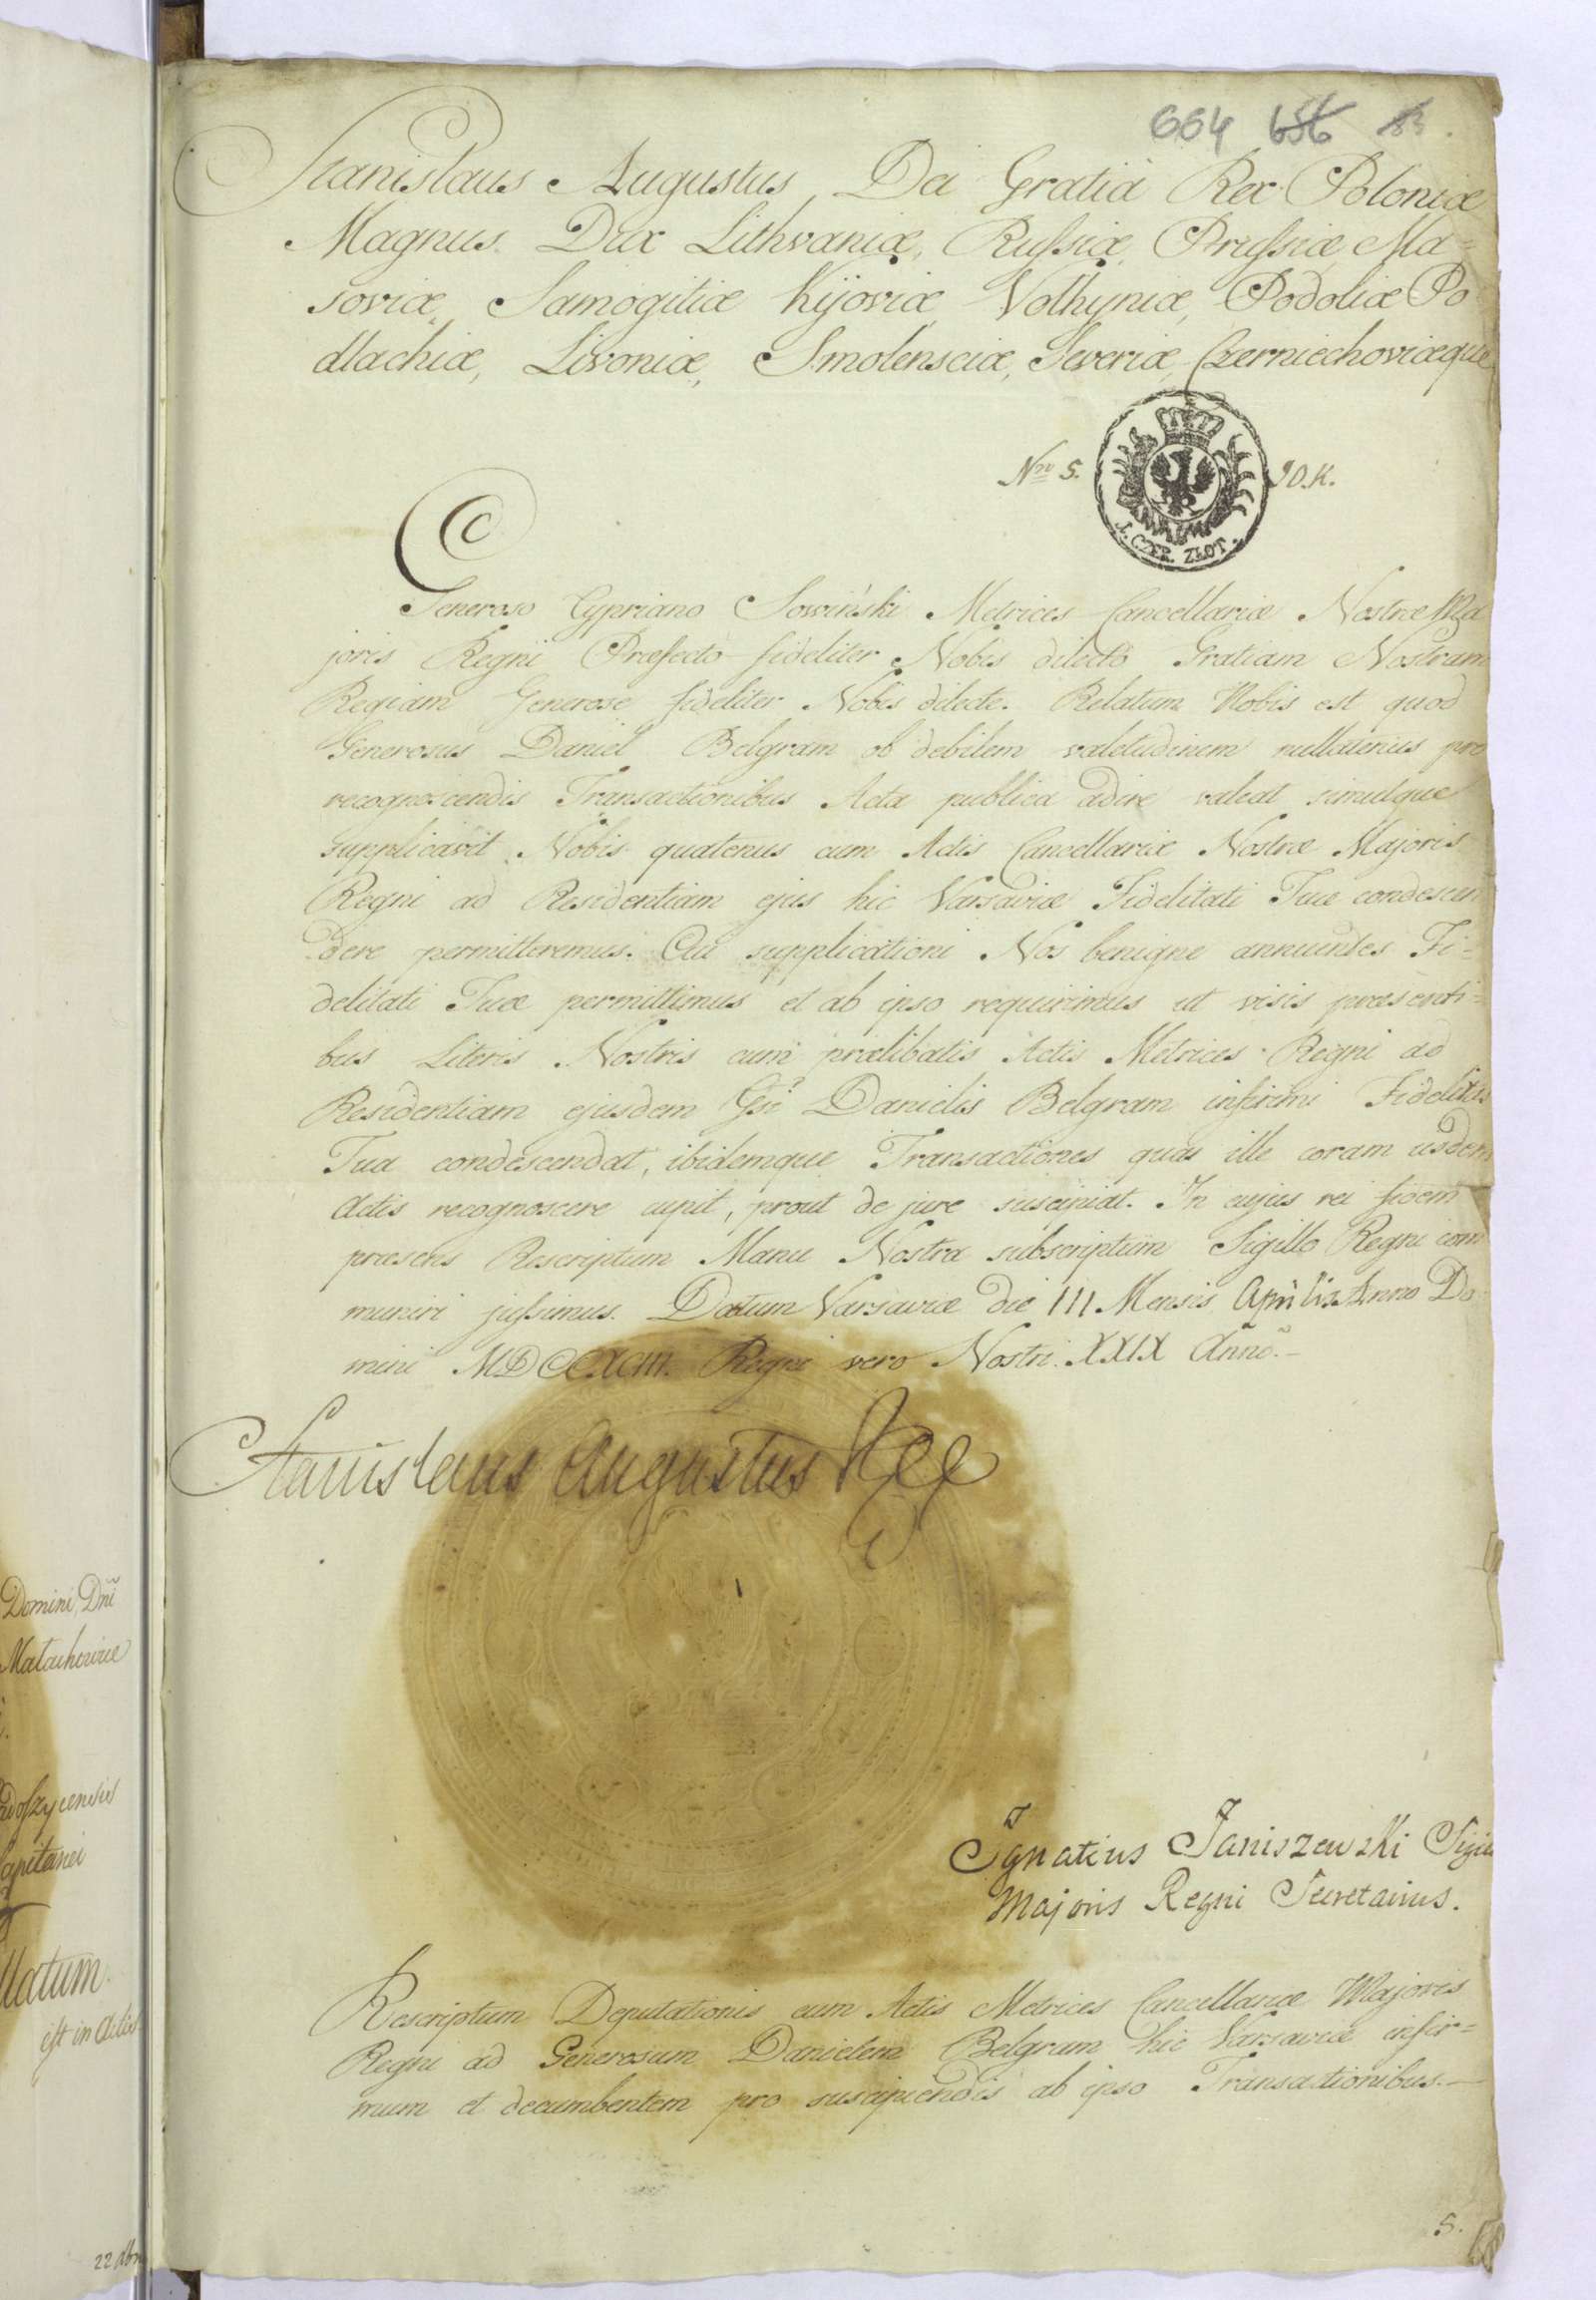 664 656 83.
Stanislaus Augustus, Dei Gratiâ Rex Poloniæ
Magnus Dux Lithvaniæ, Rufsiæ, Prufsiæ, Ma=
soviæ, Samogitiæ Kijoviæ Volhyniæ, Podoliæ Po
dlachiæ, Livoniæ, Smolensciæ, Severiæ, Czerniechoviæque
Nro 5. J.O.K.
1. CZER. ZŁOT.
Generoso Cypriano Sowiński Metrices Cancellariæ Nostræ Ma
joris Regni Præfecto fideliter Nobis dilecto Gratiam Nostram
Regiam Generose fideliter Nobis dilecte. Relatum Nobis est quod
Generosus Daniel Belgram ob debilem valetudinem nullatenus pro
recognoscendis Transactionibus Acta publica adire valeat simulque
supplicavit Nobis quatenus cum Actis Cancellariæ Nostræ Majoris
Regni ad Residentiam ejus hic Varsaviæ Fidelitati Tuæ condescen
dere permitteremus. Cui supplicationi Nos benigne annuentes Fi=
delitati Tuæ permittimus et ab ipso requirimus ut visis præsenti=
bus Literis Nostris cum prælibatis Actis Metrices Regni ad
Residentiam ejusdem Gsi Danielis Belgram infirmi Fidelitas
Tua condescendat, ibidemque Transactiones quas ille coram iisdem
Actis recognoscere cupit, prout de jure suscipiat. In cujus rei fidem
præsens Rescriptum Manu Nostra subscriptum Sigillo Regni com
muniri jufsimus. Datum Varsaviæ die III Mensis Aprilis Anno Do
mini MDCCXCIII. Regni vero Nostri XXIX Anno.-
Stanislaus Augustus Rex
Ignatius Janiszewski Sigil
Majoris Regni Secretarius.
Rescriptum Deputationis cum Actis Metrices Cancellariæ Majoris
Regni ad Generosum Danielem Belgram hic Varsaviæ infir=
mum et decumbentem pro suscipiendis ab ipso Transactionibus.-
5.
Domini Dni
Małachowice
Capitanei
llatum
est in Actis
22